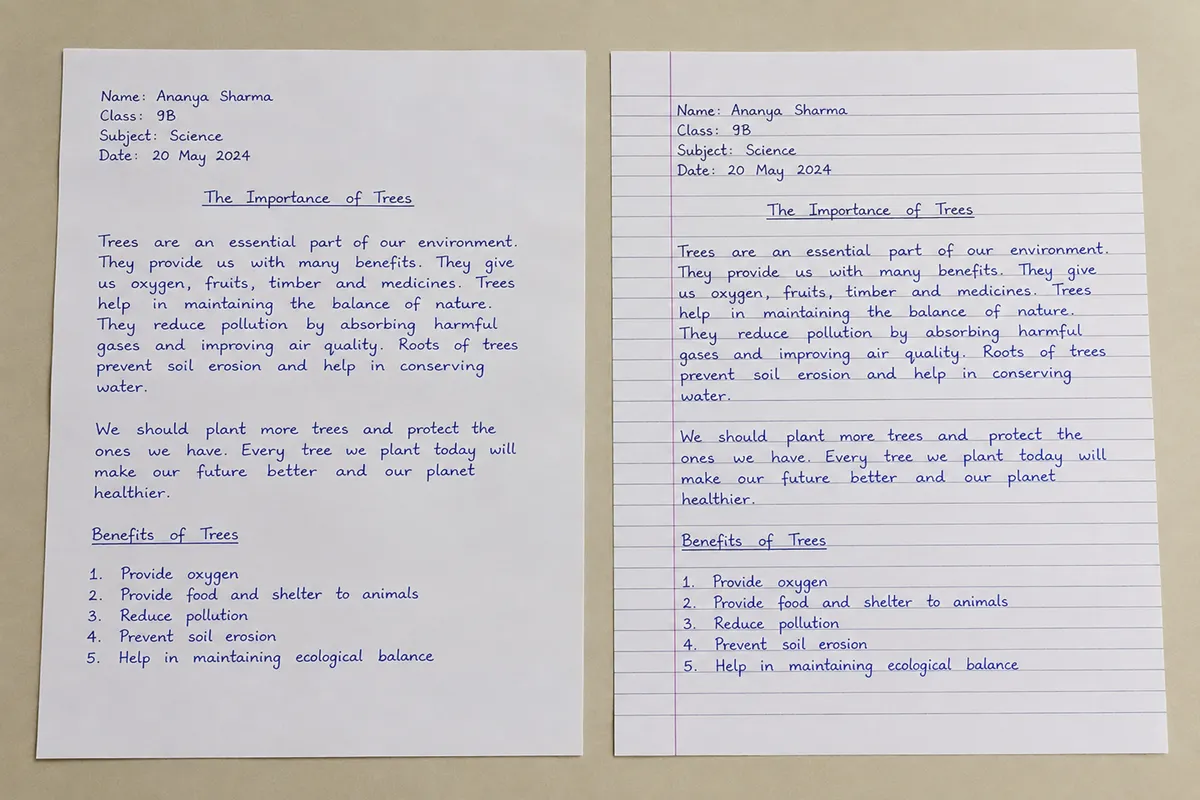 Name: Ananya Sharma
Class: 9B
Subject: Science
Date: 20 May 2024
The Importance of Trees
Trees are an essential part of our environment.
They provide us with many benefits. They give
us oxygen, fruits, timber and medicines. Trees
help in maintaining the balance of nature.
They reduce pollution by absorbing harmful
gases and improving air quality. Roots of trees
prevent soil erosion and help in conserving
water.
We should plant more trees and protect the
ones we have. Every tree we plant today will
make our future better and our planet
healthier.
Benefits of Trees
1. Provide oxygen
2. Provide food and shelter to animals
3. Reduce pollution
4. Prevent soil erosion
5. Help in maintaining ecological balance
Name: Ananya Sharma
Class: 9B
Subject: Science
Date: 20 May 2024
The Importance of Trees
Trees are an essential part of our environment.
They provide us with many benefits. They give
us oxygen, fruits, timber and medicines. Trees
help in maintaining the balance of nature.
They reduce pollution by absorbing harmful
gases and improving air quality. Roots of trees
prevent soil erosion and help in conserving
water.
We should plant more trees and protect the
ones we have. Every tree we plant today will
make our future better and our planet
healthier.
Benefits of Trees
1. Provide oxygen
2. Provide food and shelter to animals
3. Reduce pollution
4. Prevent soil erosion
5. Help in maintaining ecological balance